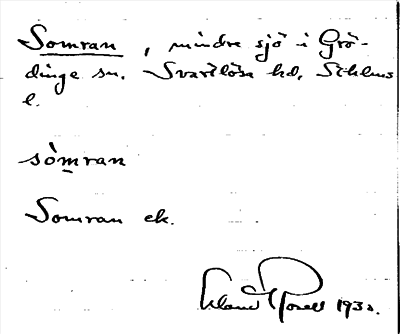 Somran, mindre sjö i Grö-
dinge sn. Svartlösa hd, Sthlms
l.
sòmran
Somran ek.
193